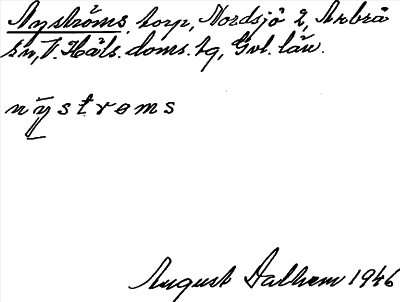 Nyströms. torp, Nordsjö 2, Arbrå
sn, V. Häls. doms. tg, Gvl. län.
nystrøms
August Dalhem 1946